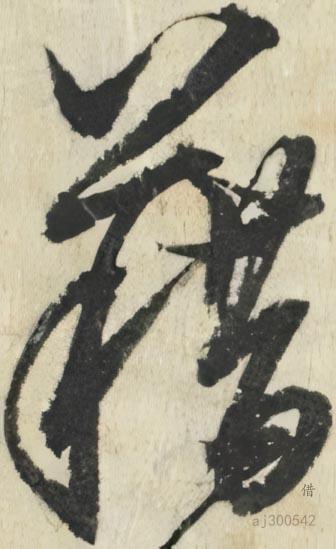 藉
借
aj300542